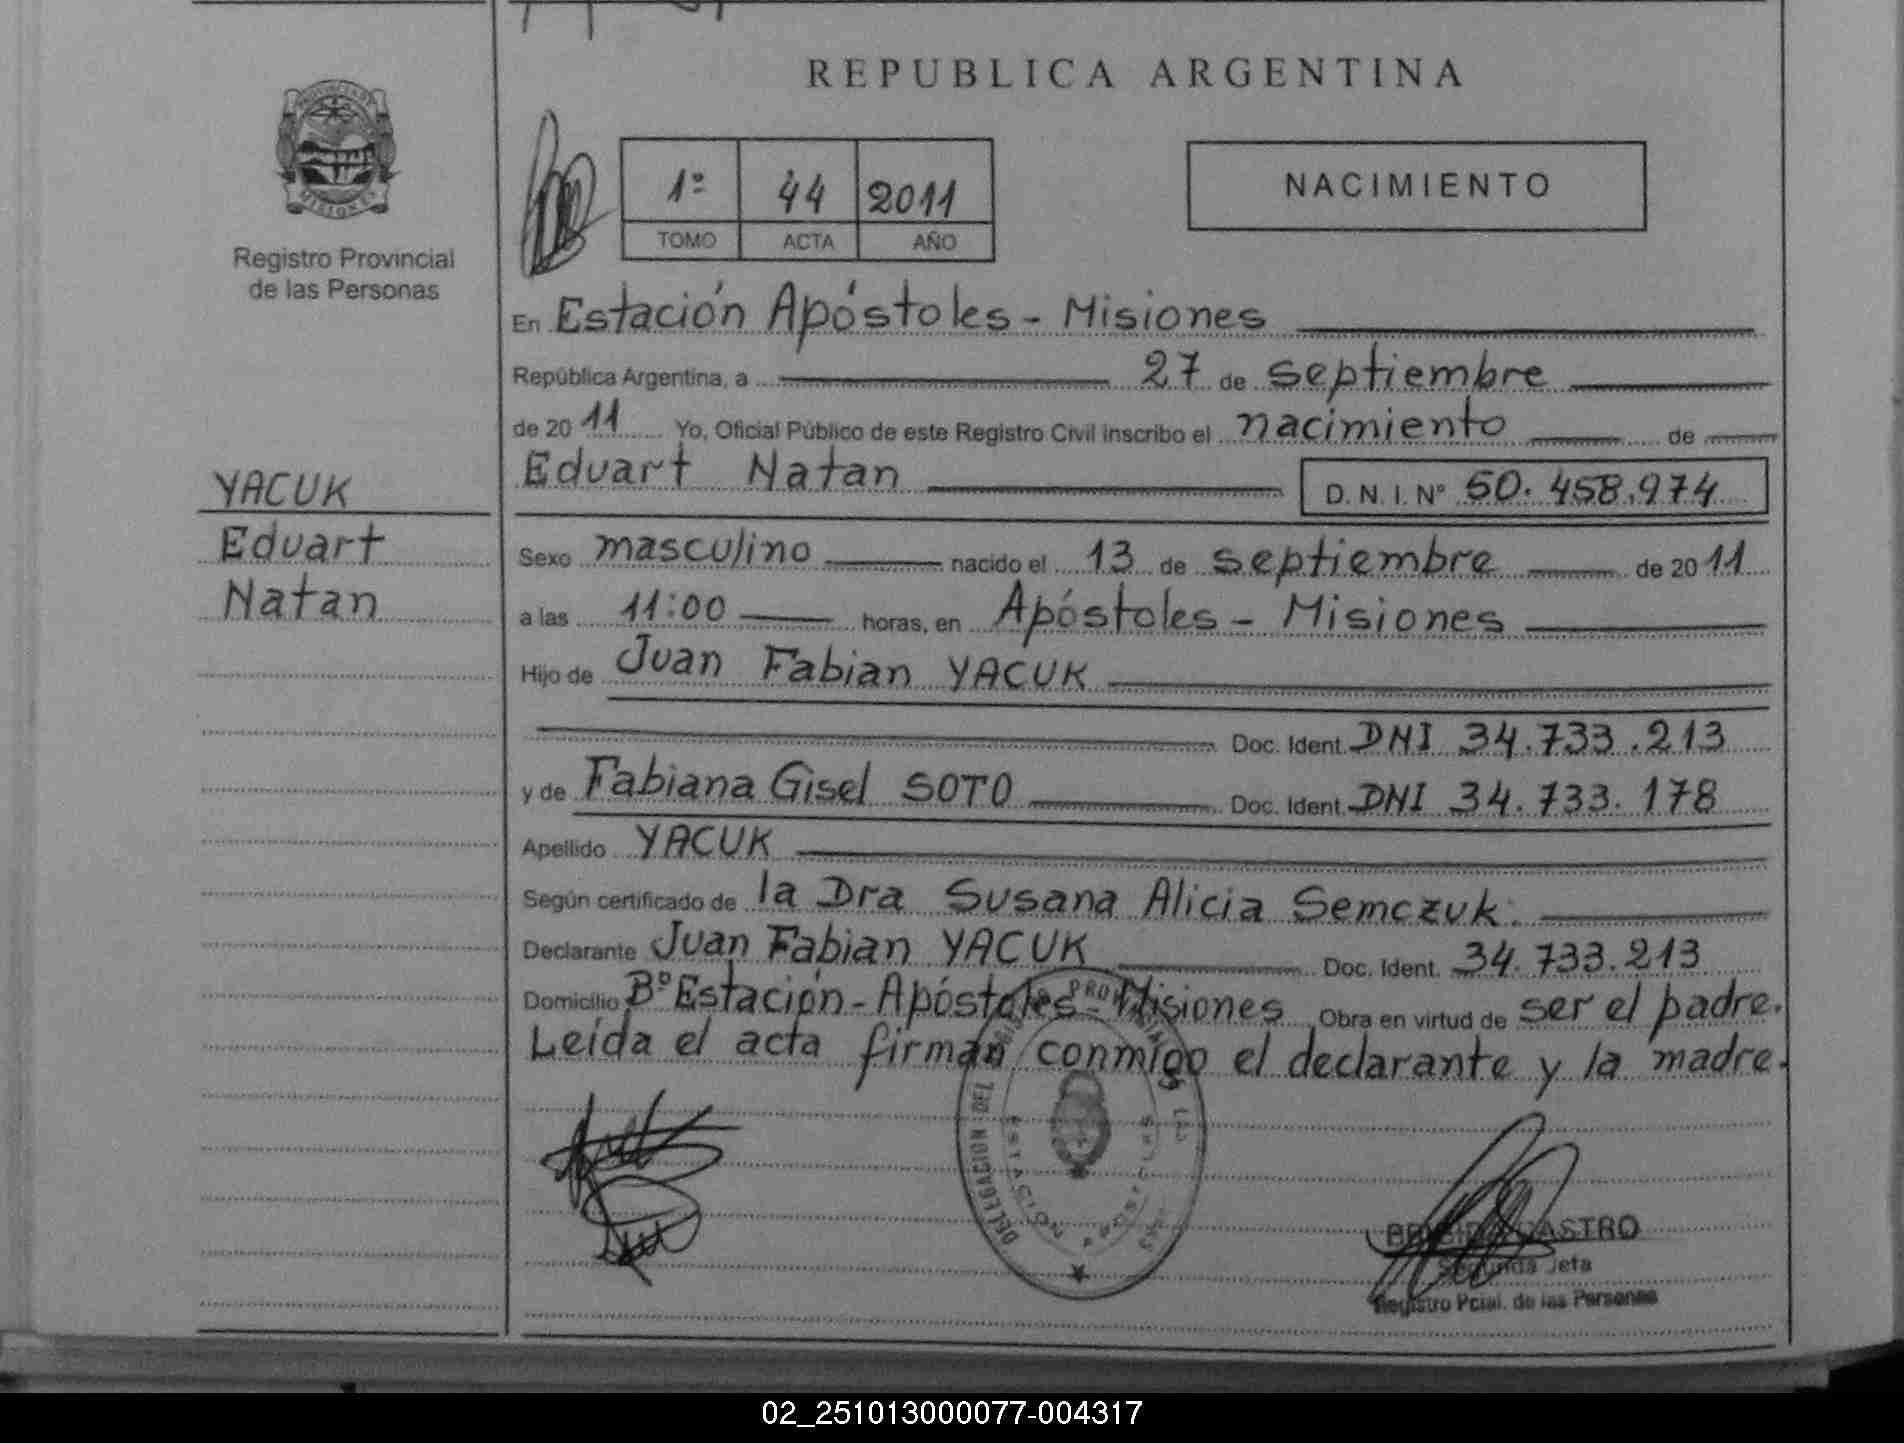 REPUBLICA ARGENTINA
PROVINCIA DE
MISIONES
Registro Provincial
de las Personas
1º 44 2011
TOMO ACTA AÑO
NACIMIENTO
En Estación Apóstoles - Misiones
República Argentina, a 27 de septiembre
de 2011 Yo, Oficial Público de este Registro Civil inscribo el nacimiento de
Eduart Natan D. N. I. Nº 50.458.974
YACUK
Eduart
Natan
Sexo masculino nacido el 13 de septiembre de 2011
a las 11:00 horas, en Apóstoles - Misiones
Hijo de Juan Fabian YACUK
Doc. Ident. DNI 34.733.213
y de Fabiana Gisel SOTO Doc. Ident. DNI 34.733.178
Apellido YACUK
Según certificado de la Dra Susana Alicia Semczuk.
Declarante Juan Fabian YACUK Doc. Ident. 34.733.213
Domicilio Bº Estación - Apóstoles - Misiones Obra en virtud de ser el padre.
Leída el acta firman conmigo el declarante y la madre.
DELEGACION DEL
ESTACION
CASTRO
Segunda Jefa
Registro Pcial. de las Personas
02_251013000077-004317